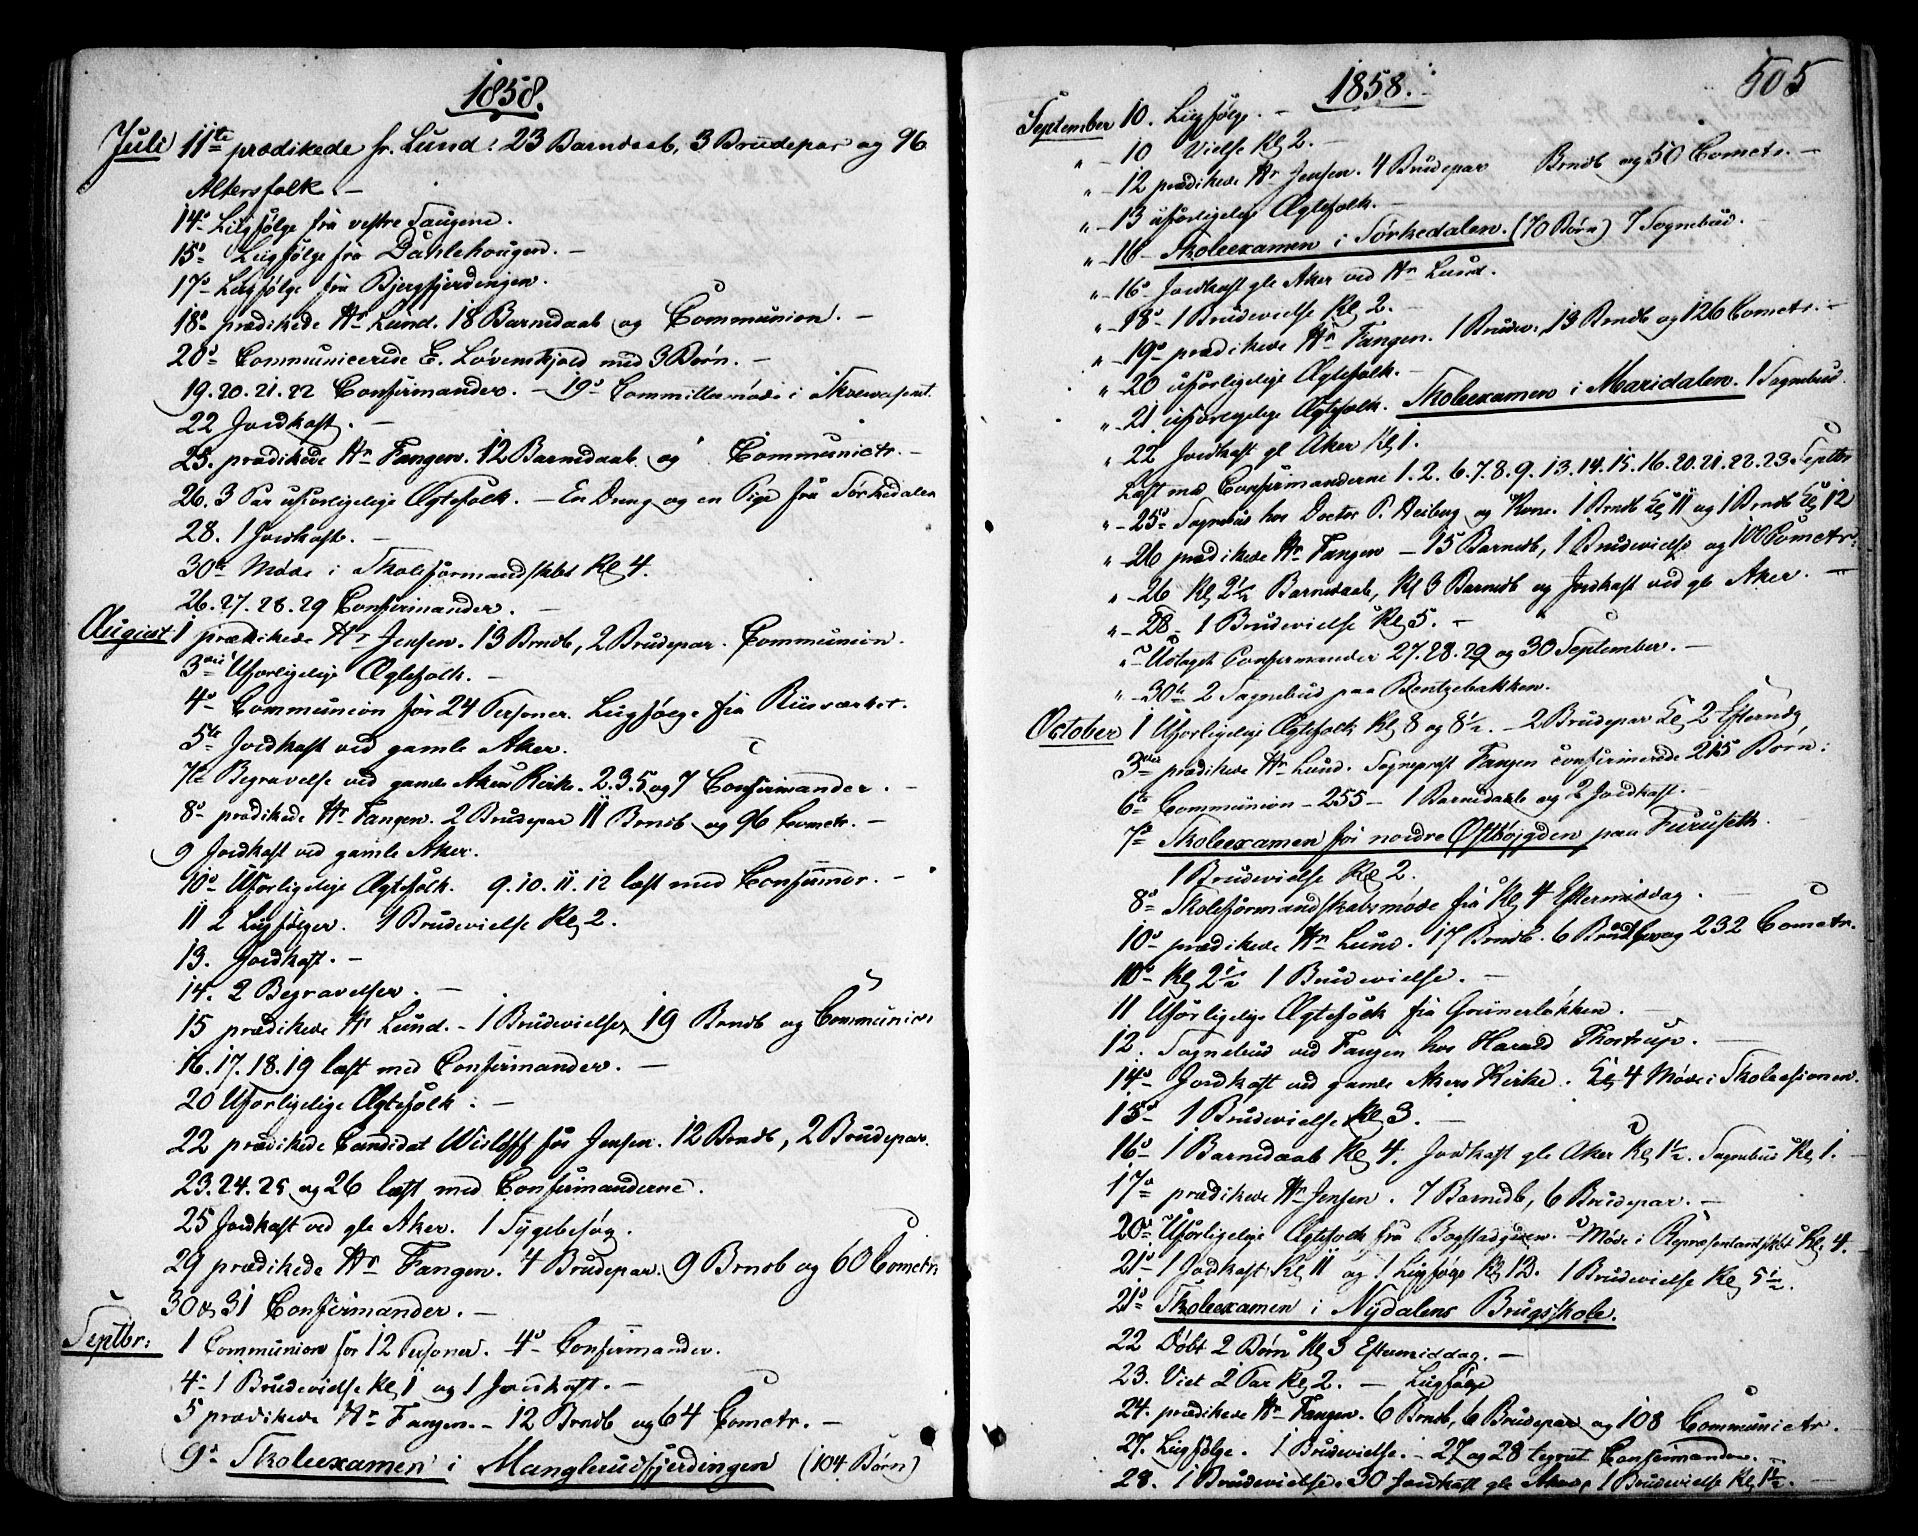 1858.
Juli 11te prædikede hr. Lund. 23 Barndaab, 3 Brudepar og 96
Altersfolk. –
14de Liigfølge fra vestre Haugene.
15de Liigfølge fra Dahlehougen. –
17de Liigfølge fra Bjergfjerdingen.
18de prædikede Hr Lund. 18 Barnedaab og Communion. –
20de Communicerede E. Løvenskjold med 3 Børn. –
19. 20. 21. 22 Confirmander. – 19de Committemøde i
22 Jordkast. –
25. prædikede Hr Fangen. 12 Barnedaab og Communictr. –
26. 3 Par uforligelige Ægtefolk. – En Dreng og en Pige fra Sørkedalen
28. 1 Jordkast. –
30te Møde i Skoleformandskabet Kl 4.
26. 27. 28. 29 Confirmander. –
August 1 prædikede Hr Jensen. 13 Brndb, 2 Brudepar. Communion.
3die Uforligelige Ægtefolk. –
4de Communion for 24 Personer. Liigfølge fra Riisværket.
5te Jordkast ved gamle Aker.
7de Begravelse ved gamle Akers Kirke. 2. 3. 5 og 7 Confirmander. –
8de prædikede Hr Fangen. 2 Brudepar 11 Brndb og 96 Cometr. –
9 Jordkast ved gamle Aker.
10de Uforligelige Ægtefolk. 9. 10. 11. 12 læst med Confirmdr. –
11 2 Liigfølger. 1 Brudevielse Kl 2.
13. Jordkast. –
14. 2 Begravelser. –
15 prædikede Hr Lund. – 1 Brudevielse, 19 Brndb og Communion
16. 17. 18. 19 læst med Confirmander. –
20 Uforligelige Ægtefolk. –
22 prædikede Candidat Wisløff for Jensen. 12 Brndb, 2 Brudepar.
23. 24. 25 og 26 læst med Confirmanderne.
25 Jordkast ved gle Aker. 1 Sygebesøg.
29 prædikede Hr Fangen. 4 Brudepar. 9 Brndb og 60 Cometr.
30 & 31 Confirmander. –
Septbr: 1 Communion for 12 Personer. – 4de Confirmander.
4de 1 Brudevielse Kl 1 og 1 Jordkast. –
5 prædikede Hr Fangen. – 12 Brndb og 64 Cometr. –
9de Skoleexamen i Manglerudfjerdingen (104 Børn)
1858.
505
September 10. Liigfølge. –
" – 10 Vielse Kl 2. –
" – 12 prædikede Hr Jensen. 4 Brudepar Brndb og 50 Cometr. –
" – 13 uforligelige Ægtefolk. –
" – 16 Skoleexamen i Sørkedalen. (70 Børn) 7 Sognebud. –
" – 16de Jordkast gle Aker ved Hr Lund.
" – 18de 1 Brudevielse Kl 2. –
" – 19de prædikede Hr Fangen. 1 Brudev., 13 Brndb og 126 Cometr. –
" – 20 uforligelige Ægtefolk. –
" – 21. uforligelige Ægtefolk. Skoleexamen i Maridalen. 1 Sognebud.
" – 22 Jordkast gl Aker Kl 1.
Læst med Confirmanderne 1. 2. 6. 7. 8. 9. 13. 14. 15. 16. 20. 21. 22. 23 Septbr
" – 25de Sognebud hos Doctor P. Heiberg og Kone. 1 Brndb Kl 11 og 1 Brndb Kl 12
" – 26 prædikede Hr Fangen – 15 Barndb, 1 Brudevielse og 100 Cometr.
" – 26 Kl 2½ Barnedaab, Kl 3 Barndb og Jordkast ved gle Aker. –
" – 28 – 1 Brudevielse Kl 5. –
" – Udtaget Confirmander 27. 28. 29 og 30 September. –
" – 30te 2 Sognebud paa Bentzebakken.
October 1 Uforligelige Ægtefolk Kl 8 og 8½. – 2 Brudepar Kl 2 Eftermdg
3die prædikede Hr Lund. Sogneprest Fangen confirmerede 215 Børn:
6te Communion – 255 – 1 Barnedaab og 2 Jordkast. –
7de Skoleexamen for nordre Østbøygden paa Furuseth.
1 Brudevielse Kl 2.
8de Skoleformandskabsmøde fra Kl 4 Eftermiddag.
10de prædikede Hr Lund. 17 Brndb. 6 Brudepar og 232 Cometr.
10de Kl 2½ 1 Brudevielse. –
11 Uforligelige Ægtefolk fra Grünerløkken. –
12. Sognebud ved Fangen hos Harald Thostrup. –
14de Jordkast ved gamle Akers Kirke. Kl 4 Møde i
15de 1 Brudevielse Kl 3. –
16de 1 Barnedaab Kl 4. Jordkast gle Aker Kl 1½. Sognebud Kl 1. –
17de prædikede Hr Jensen. 7 Barnedb, 6 Brudepar. –
20de Uforligelige Ægtefolk fra – Møde i Repræsentantskbt Kl 4.
21de 1 Jordkast Kl 11 og 1 Liigfølge Kl 12. 1 Brudevielse Kl 5½.
21de Skoleexamen i Nydalens Brugsskole.
22 Døbt 2 Børn Kl 3 Eftermiddag. –
23. Viet 2 Par Kl 2. – Liigfølge
24. prædikede Hr Fangen. 6 Brndb, 6 Brudepar og 108 Communictr.
27. Liigfølge. 1 Brudevielse. – 27 og 28 Confirmander. –
28. 1 Brudevielse. 30 Jordkast gle Aker, 1 Brudevielse Kl 1½. –